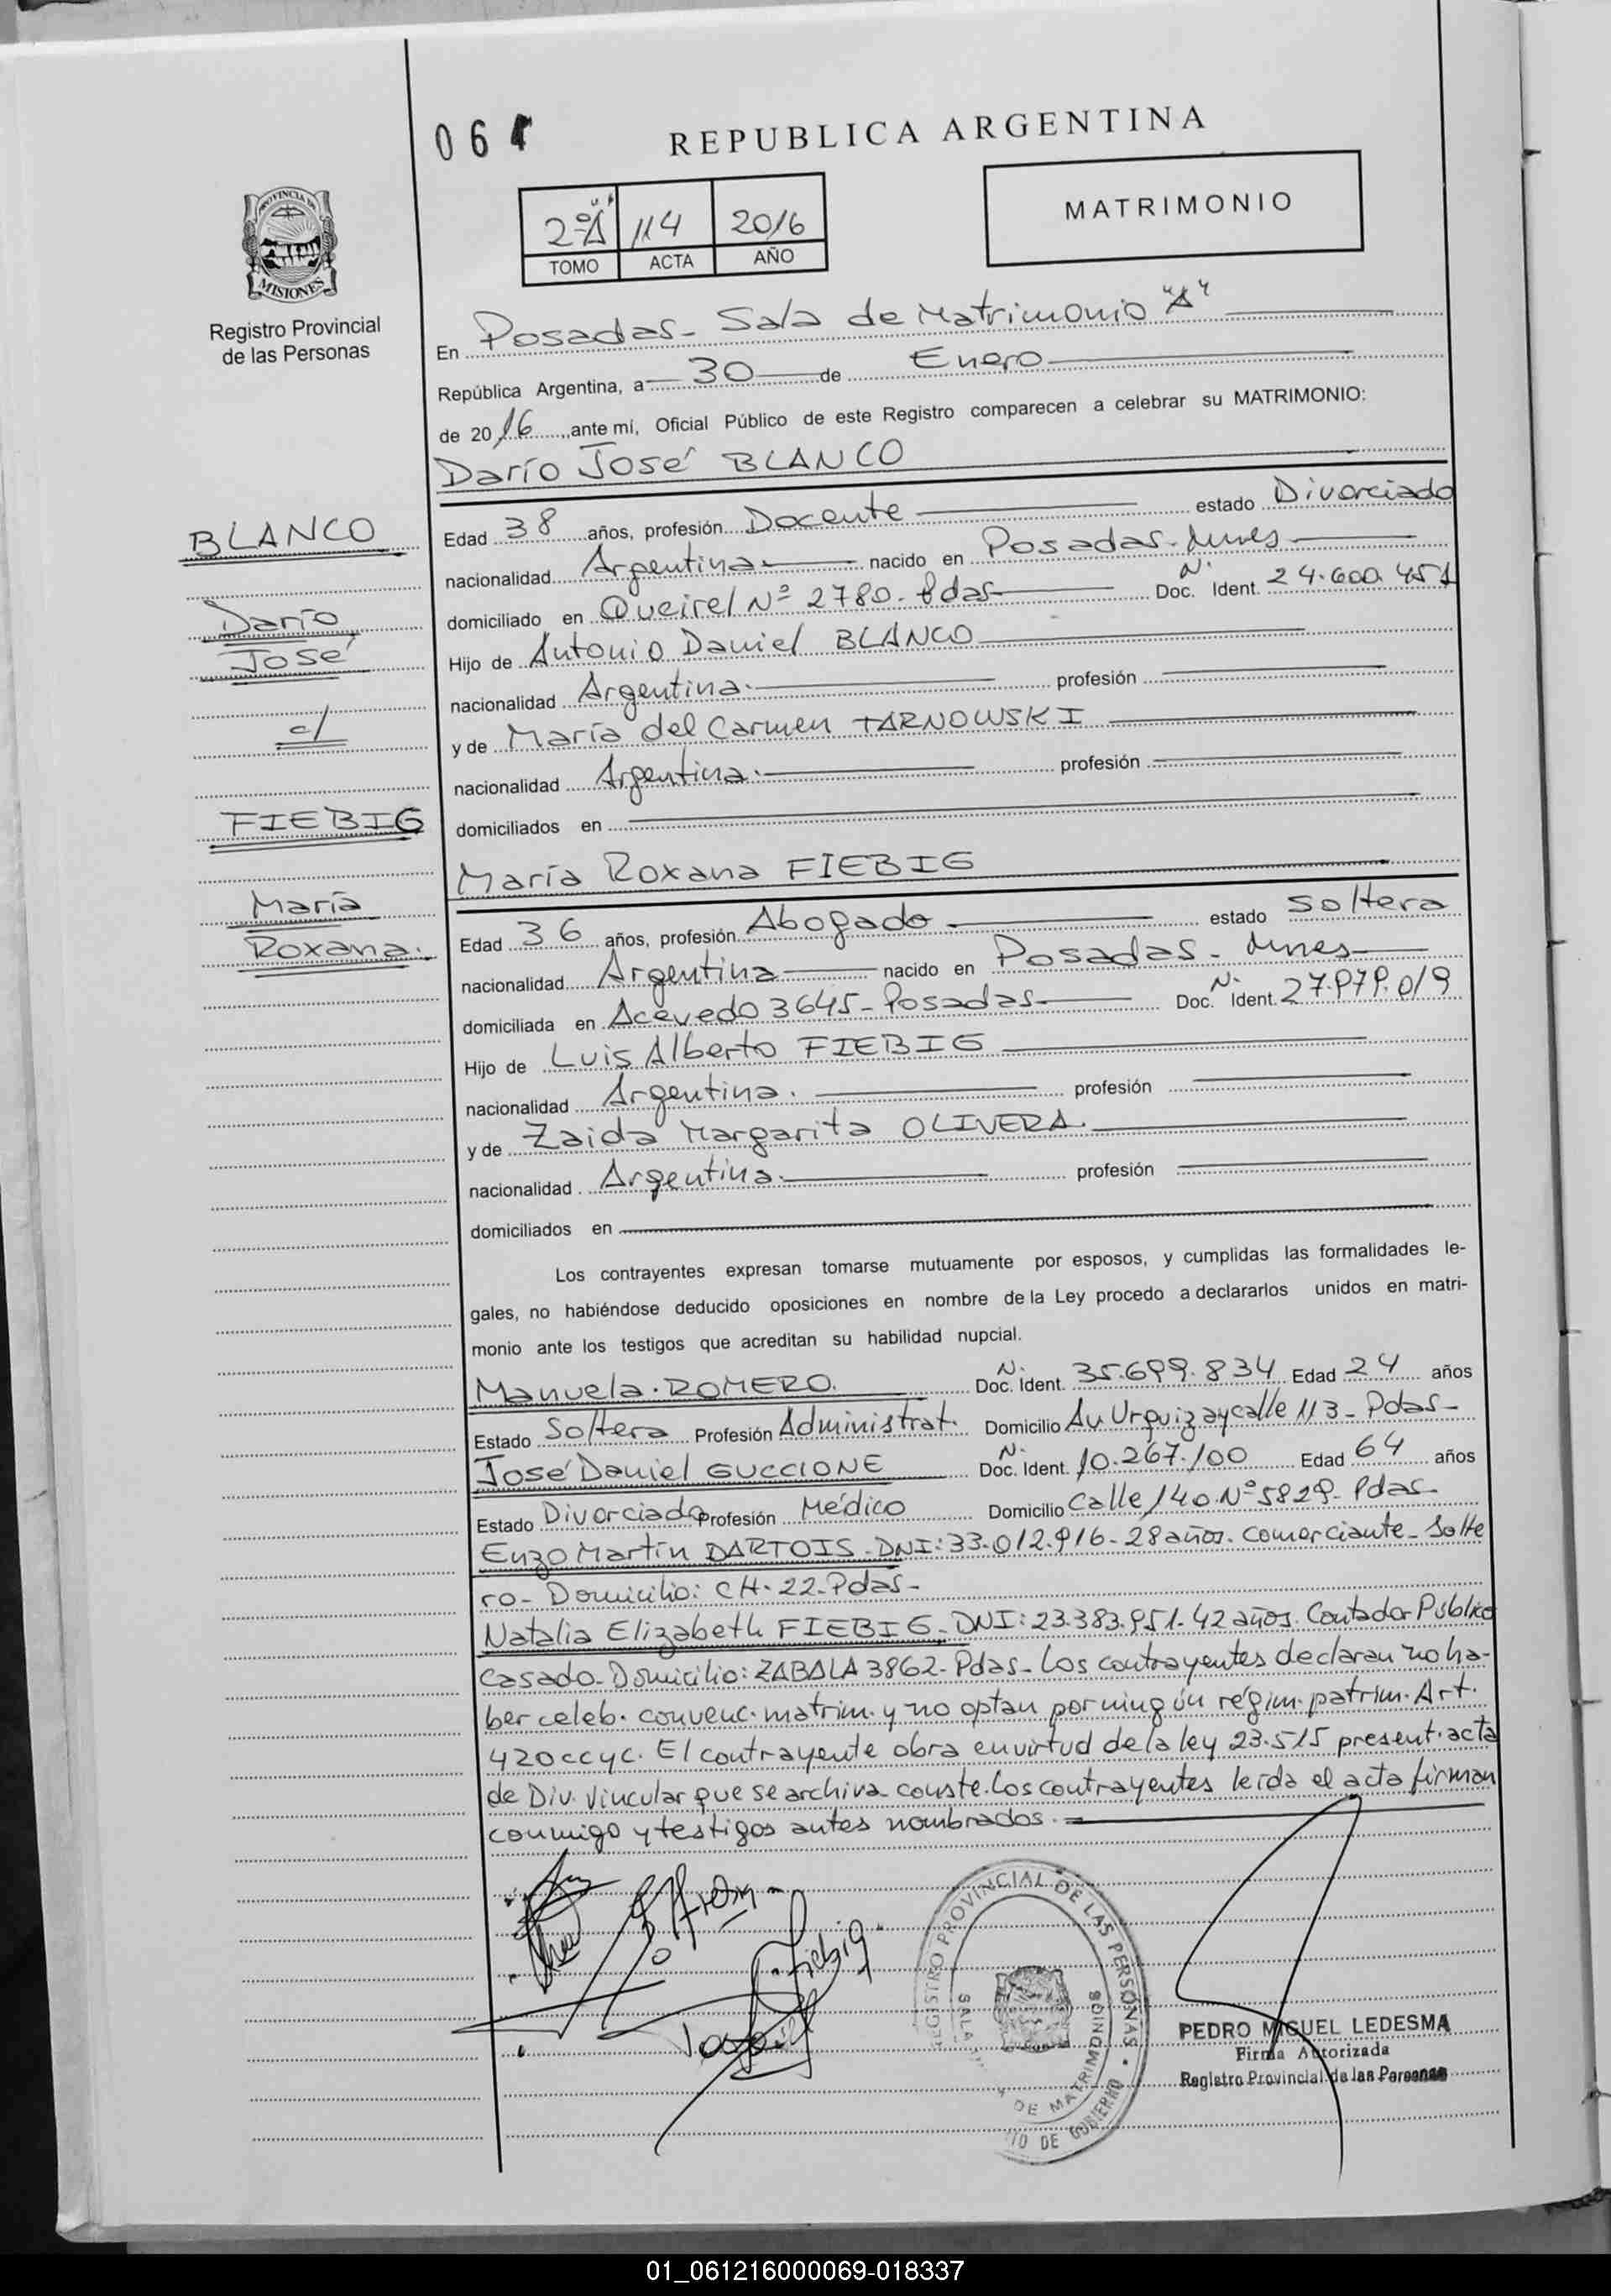 REPUBLICA ARGENTINA
2º "A" 114 2016
TOMO ACTA AÑO
MATRIMONIO
PROVINCIA DE
MISIONES
Registro Provincial
de las Personas
En Posadas - Sala de Matrimonio "A"
República Argentina, a 30 de Enero
de 2016, ante mí, Oficial Público de este Registro comparecen a celebrar su MATRIMONIO:
Darío José BLANCO
BLANCO
Darío
José
c/
FIEBIG
María
Roxana.
Edad 38 años, profesión Docente estado Divorciado
nacionalidad Argentina nacido en Posadas - Mnes
domiciliado en Queirel Nº 2780 - Pdas Doc. N. Ident. 24.600.451
Hijo de Antonio Daniel BLANCO
nacionalidad Argentina. profesión
y de María del Carmen TARNOWSKI
nacionalidad Argentina. profesión
domiciliados en
María Roxana FIEBIG
Edad 36 años, profesión Abogado estado Soltera
nacionalidad Argentina nacido en Posadas - Mnes
domiciliada en Acevedo 3645 - Posadas Doc. N. Ident. 27.979.019
Hijo de Luis Alberto FIEBIG
nacionalidad Argentina. profesión
y de Zaida Margarita OLIVERA.
nacionalidad Argentina. profesión
domiciliados en
Los contrayentes expresan tomarse mutuamente por esposos, y cumplidas las formalidades le-
gales, no habiéndose deducido oposiciones en nombre de la Ley procedo a declararlos unidos en matri-
monio ante los testigos que acreditan su habilidad nupcial.
Manuela. ROMERO. Doc. N. Ident. 35.699.834 Edad 24 años
Estado Soltera Profesión Administrat. Domicilio Av. Urquiza y calle 113 - Pdas -
José Daniel GUCCIONE Doc. N. Ident. 10.267.100 Edad 64 años
Estado Divorciado Profesión Médico Domicilio Calle 140 Nº 5829 - Pdas -
Enzo Martín DARTOIS - DNI: 33.012.916 - 28 años. Comerciante - Solte
ro - Domicilio: CH. 22 - Pdas -
Natalia Elizabeth FIEBIG - DNI: 23.383.951 - 42 años. Contador Público
Casado - Domicilio: ZABALA 3862 - Pdas - Los contrayentes declaran no ha-
ber celeb. convenc. matrim. y no optan por ningún régim. patrim. Art.
420 ccyc. El contrayente obra en virtud de la ley 23.515 present. acta
de Div. Vincular que se archiva conste. Los contrayentes leída el acta firman
conmigo y testigos antes nombrados.
Fiebig
REGISTRO PROVINCIAL DE LAS PERSONAS
SALA DE MATRIMONIOS
DE GOBIERNO
PEDRO MIGUEL LEDESMA
Firma Autorizada
Registro Provincial de las Personas
01_061216000069-018337